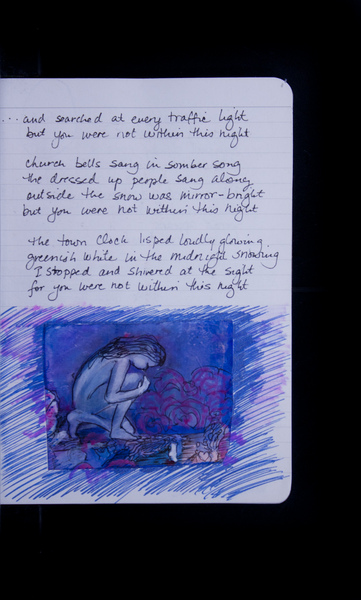 ... and searched at every traffic light
but you were not within this night
church bells sang in somber song
the dressed up people sang along
outside the snow was mirror-bright
but you were not within this night
the town clock lisped loudly glowing
greenish white in the midnight snowing
I stopped and shivered at the sight
for you were not within this night